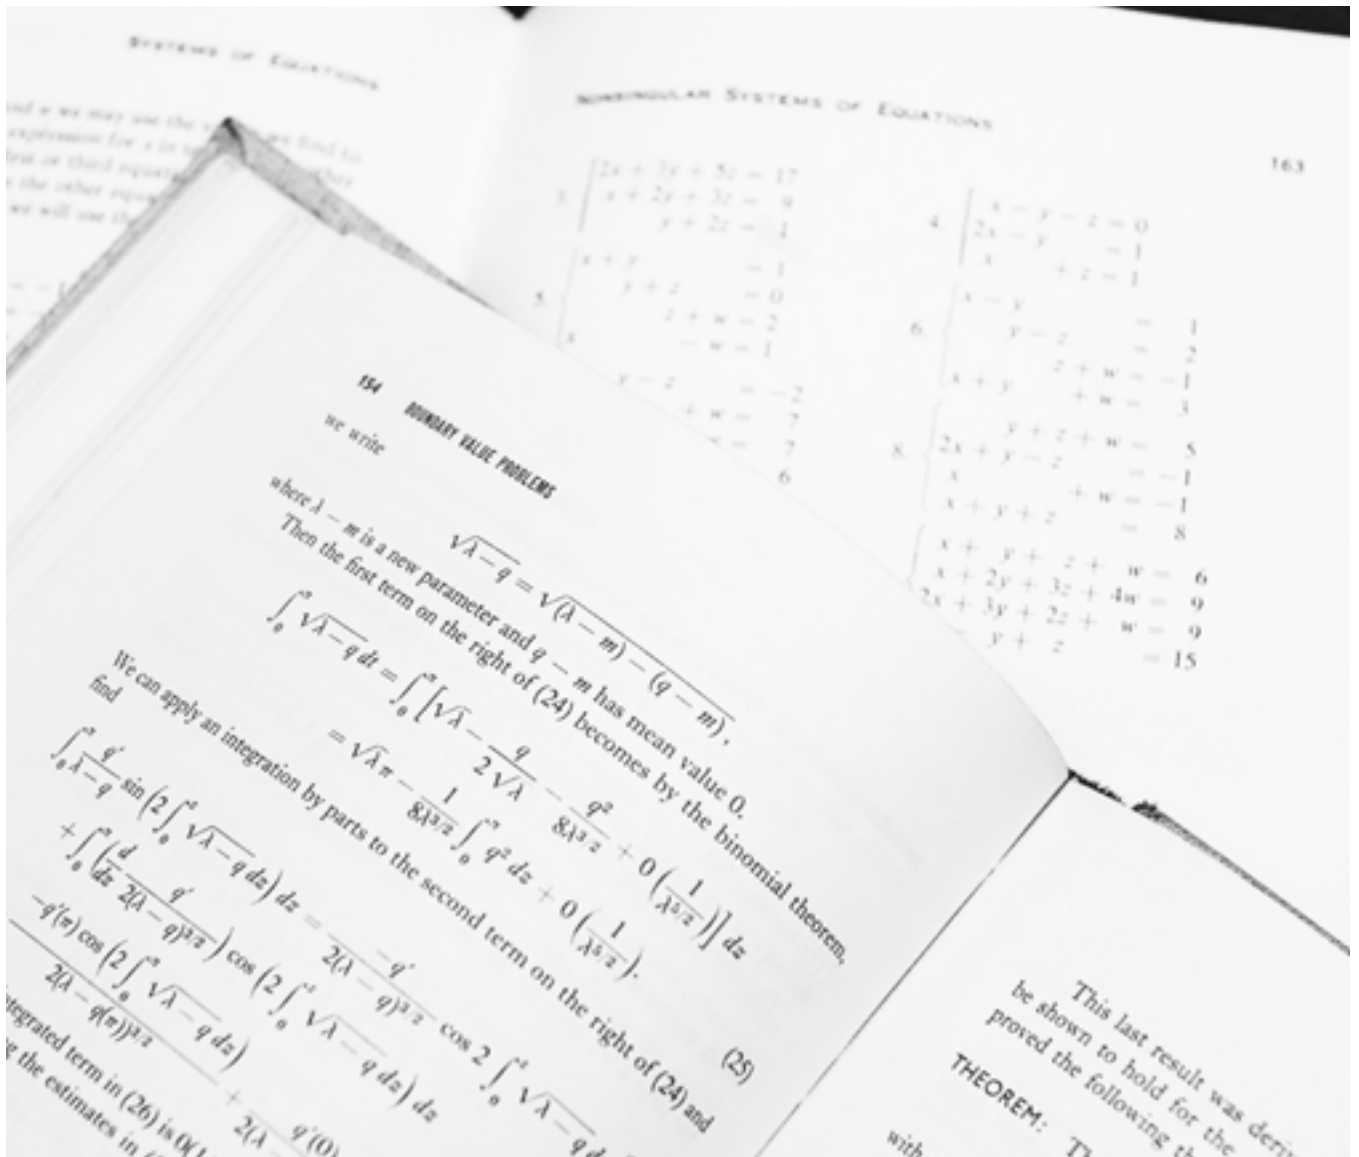 SYSTEMS OF EQUATIONS
NONSINGULAR SYSTEMS OF EQUATIONS
163
3. 2x + 3y + 5z = 17
x + 2y + 3z = 9
y + 2z = 1
4. x - y - z = 0
2x - y = 1
x + z = 1
5. x + y = 1
y + z = 0
z + w = 2
x - w = 1
6. x - y = 1
y - z = 2
z + w = -1
x + y + w = 3
y - z = -2
+ w = 7
w = 7
6
8. y + z + w = 5
2x + y - z = -1
x + w = -1
x + y + z = 8
x + y + z + w = 6
x + 2y + 3z + 4w = 9
2x + 3y + 2z + w = 9
y + z = 15
154 BOUNDARY VALUE PROBLEMS
we write
√(λ - q) = √((λ - m) - (q - m)),
where λ - m is a new parameter and q - m has mean value 0.
Then the first term on the right of (24) becomes by the binomial theorem,
∫₀^π √(λ - q) dt = ∫₀^π [√λ - q/(2√λ) - q²/(8λ^(3/2)) + 0(1/λ^(5/2))] dz
= √λ π - 1/(8λ^(3/2)) ∫₀^π q² dz + 0(1/λ^(5/2)). (25)
We can apply an integration by parts to the second term on the right of (24) and
find
∫₀^π q'/(λ - q) sin(2∫₀^z √(λ - q) dz) dz = -q'/(2(λ - q)^(3/2)) cos 2∫₀^z √(λ - q) d
+ ∫₀^π (d/dz q'/(2(λ - q)^(3/2))) cos(2∫₀^z √(λ - q) dz) dz
-q'(π) cos(2∫₀^π √(λ - q) dz)/(2(λ - q(π))^(3/2)) + q'(0)/2(λ -
tegrated term in (26) is 0(
g the estimates in
This last result was deri
be shown to hold for the
proved the following th
THEOREM: Th
with